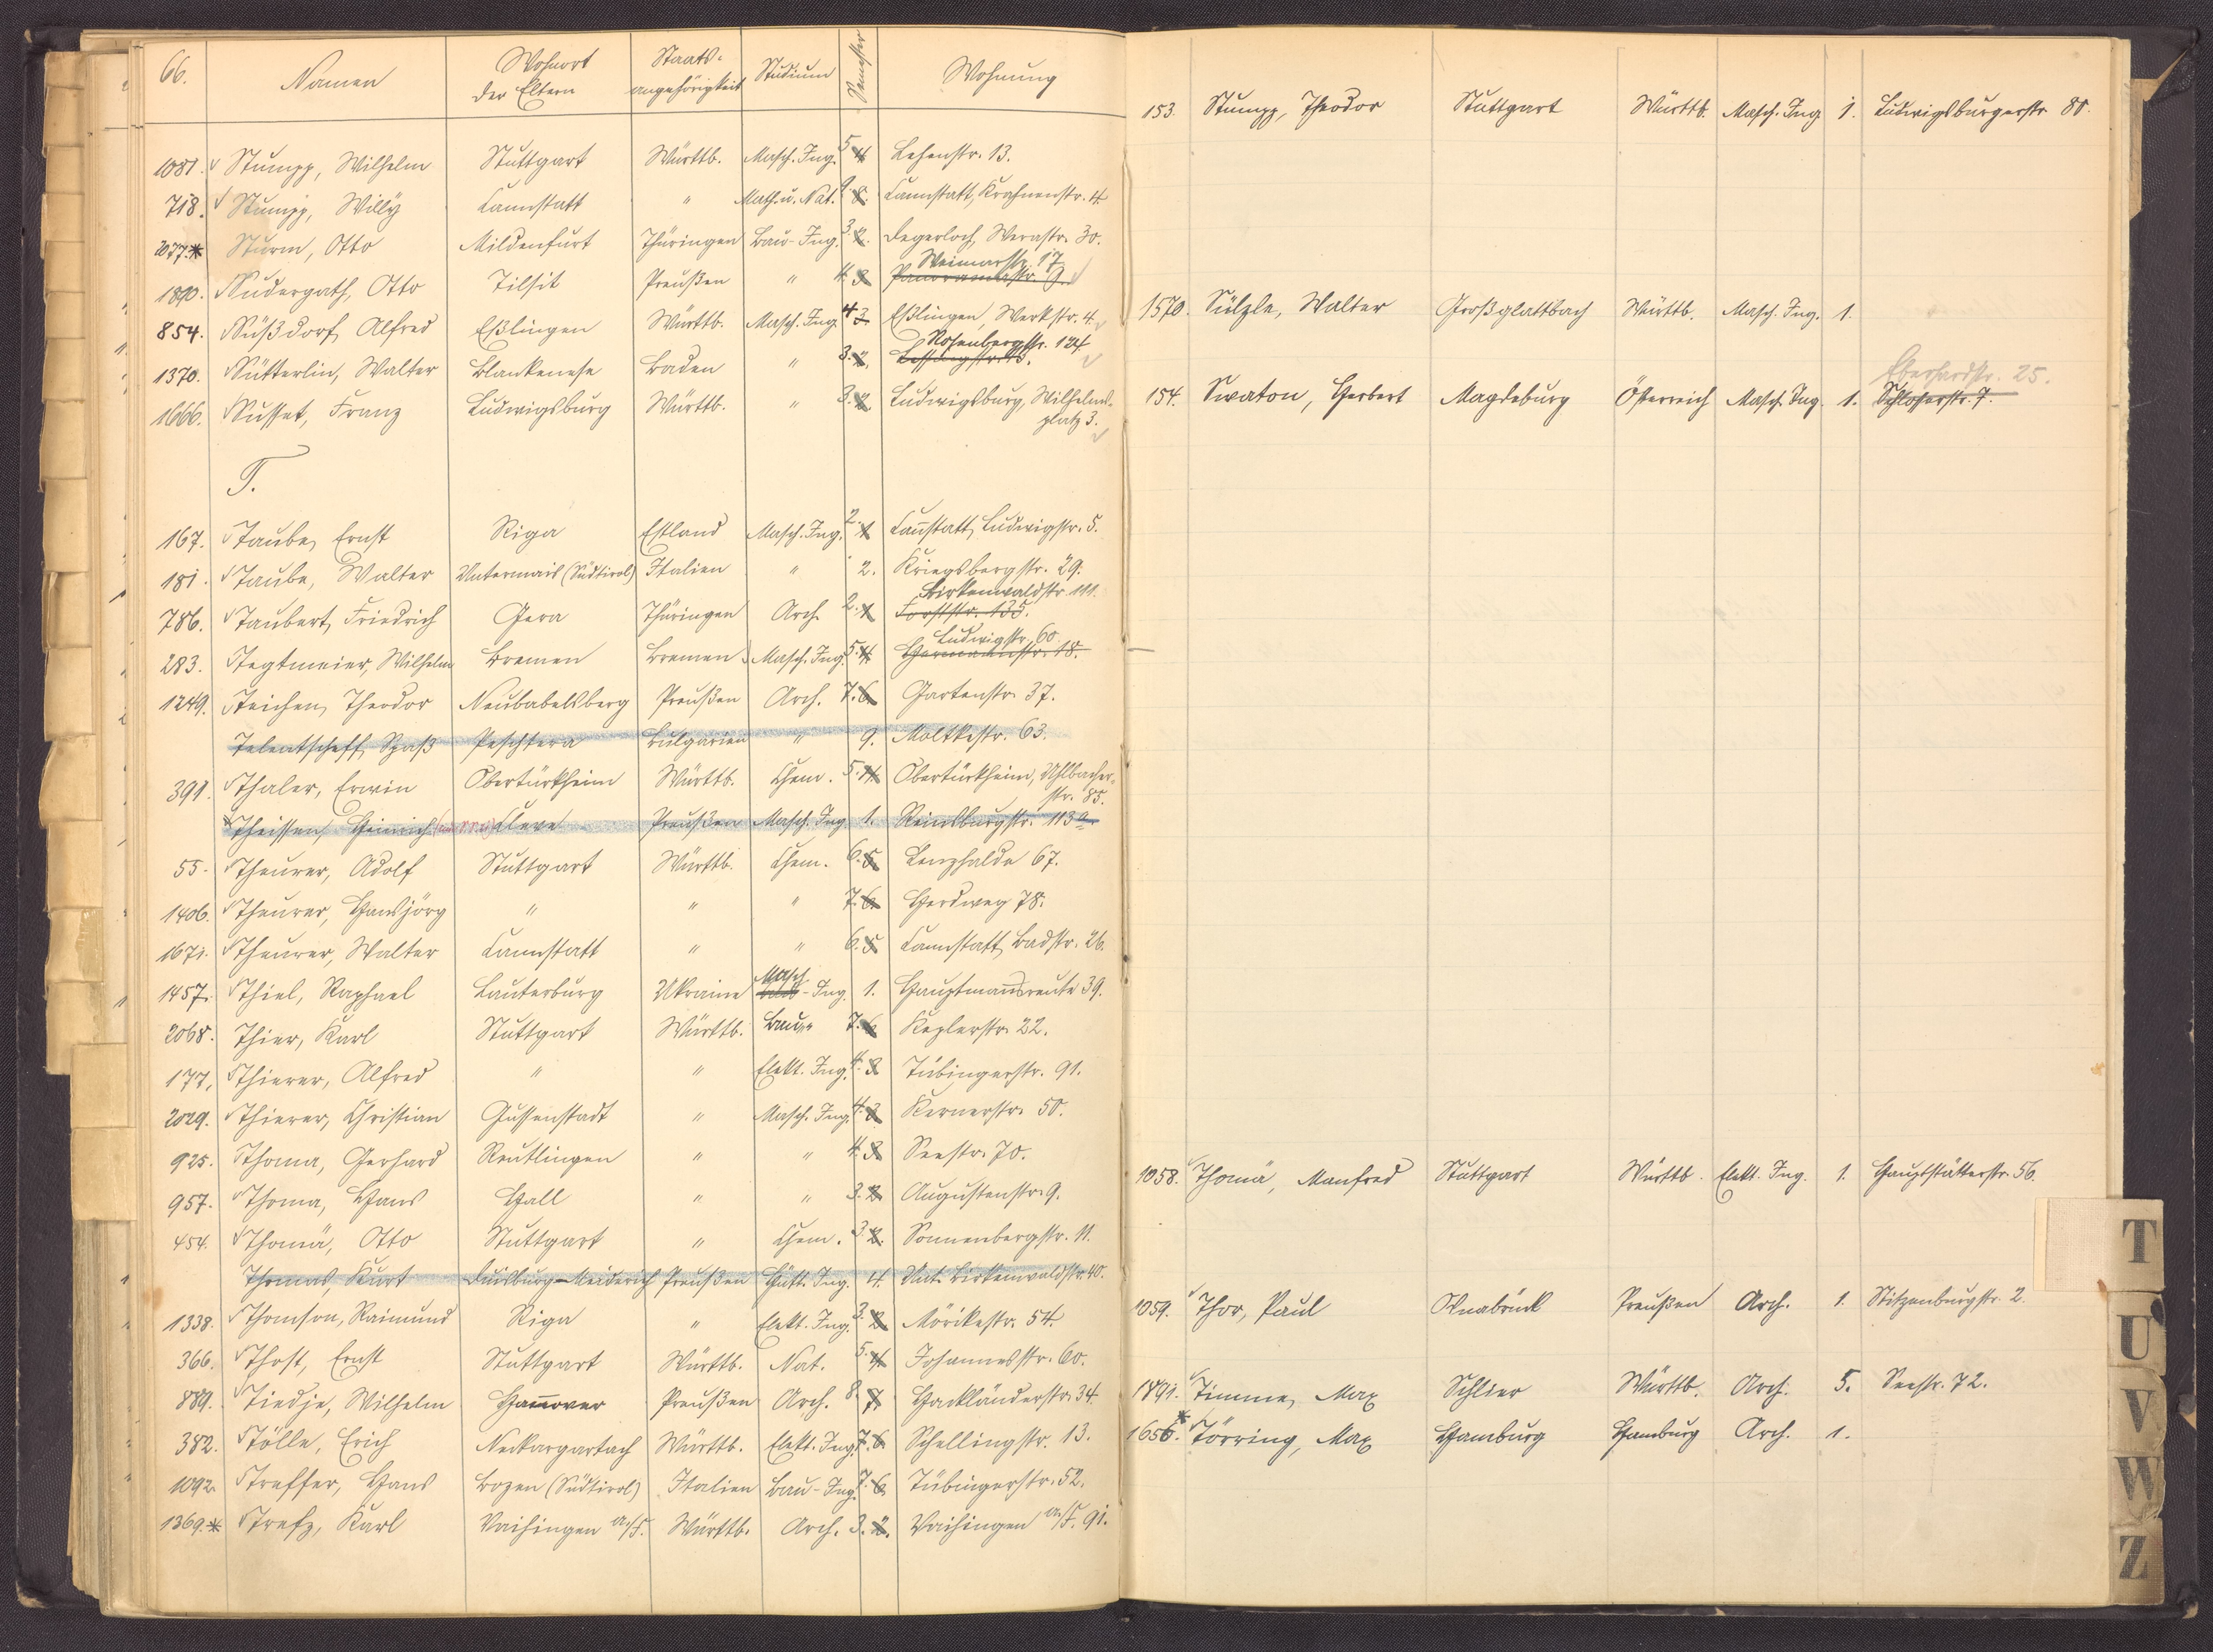 66. Namen Wohnort der Eltern Staats-angehörigkeit Studium Semester Wohnung
1081. Stumpp, Wilhelm Stuttgart Württb. Masch. Ing. 5. 4. Lehenstr. 13.
718. Stumpp, Willy Cannstatt " Math. u. Nat. 8. Cannstatt, Krahnenstr. 4.
2077.* Sturm, Otto Mildenfurt Thüringen Bau-Ing. 3. 2. Degerloch, Werastr. 30.
Weimarstr. 17
1890. Sudergath, Otto Tilsit Preußen " 4. 3. Panoramastr. 9.
854. Süßdorf, Alfred Eßlingen Württb. Masch. Ing. 4. 3. Eßlingen, Werkstr. 4.
Rosenbergstr. 124
1370. Sütterlin, Walter Blankenese Baden " 3. 2. Lessingstr. 13.
1666. Susset, Franz Ludwigsburg Württb. " 3. 2. Ludwigsburg, Wilhelms-
platz 3.
T.
167. Taube, Ernst Riga Estland Masch. Ing. 2. 1. Cannstatt, Ludwigstr. 5.
181. Taube, Walter Untermais (Südtirol) Italien " 2. Kriegsbergstr. 29.
Birkenwaldstr. 111.
786. Taubert, Friedrich Gera Thüringen Arch. 2. 1. Forststr. 135.
Ludwigstr. 60
283. Tegtmeier, Wilhelm Bremen Bremen Masch. Ing. 5. 4. Hermannstr. 18.
1249. Teichen, Theodor Neubabelsberg Preußen Arch. 7. 6. Gartenstr. 37.
Telentscheff, Spaß Peschtera Bulgarien " 9. Moltkestr. 63.
391. Thaler, Erwin Obertürkheim Württb. Chem. 5. 4. Obertürkheim, Uhlbacher-
str. 85.
Theissen, Heinrich Cleve Preußen Masch. Ing. 1. Reinsburgstr. 113a.
55. Theurer, Adolf Stuttgart Württb. Chem. 6. 5. Lenzhalde 67.
1406. Theurer, Hansjörg " " " 7. 6. Herdweg 78.
1671. Theurer, Walter Cannstatt " " 6. 5. Cannstatt, Badstr. 26.
Masch.
1457. Thiel, Raphael Lauterburg Ukraine Bau-Ing. 1. Hauptmannsreute 39.
2068. Thier, Karl Stuttgart Württb. Bau " 7. 6. Keplerstr. 22.
177. Thierer, Alfred " " Elekt. Ing. 4. 3. Tübingerstr. 91.
2029. Thierer, Christian Gussenstadt " Masch. Ing. 4. 3. Kernerstr. 50.
925. Thoma, Gerhard Reutlingen " " 4. 3. Seestr. 70.
957. Thoma, Hans Hall " " 3. 2. Augustenstr. 9.
454. Thomä, Otto Stuttgart " Chem. 3. 2. Sonnenbergstr. 11.
Thomas, Kurt Duisburg-Meiderich Preußen Hütt. Ing. 4. Unt. Birkenwaldstr. 40.
1338. Thomson, Raimund Riga " Elekt. Ing. 3. 2. Mörikestr. 54.
366. Thost, Ernst Stuttgart Württb. Nat. 5. 4. Johannesstr. 60.
889. Tiedje, Wilhelm Hannover Preußen Arch. 8. 7. Hackländerstr. 34.
382. Tölle, Erich Neckargartach Württb. Elekt. Ing. 7. 6. Schellingstr. 13.
1092. Treffer, Hans Bozen (Südtirol) Italien Bau-Ing. 7. 6. Tübingerstr. 52.
1369.* Trefz, Karl Vaihingen a/F. Württb. Arch. 3. 2. Vaihingen a/F. 91.
153. Stumpp, Theodor Stuttgart Württb. Masch. Ing. 1. Ludwigsburgerstr. 80.
1570. Sülzle, Walter Großglattbach Württb. Masch. Ing. 1.
Eberhardstr. 25.
154. Swaton, Herbert Magdeburg Österreich Masch. Ing. 1. Schloßerstr. 7.
1058. Thomä, Manfred Stuttgart Württb. Elekt. Ing. 1. Hauptstätterstr. 56.
1059. Thor, Paul Osnabrück Preußen Arch. 1. Stitzenburgstr. 2.
1891. Timme, Max Schlier Württb. Arch. 5. Seestr. 72.
1656.* Törring, Max Hamburg Hamburg Arch. 1.
T
U
V
W
Z